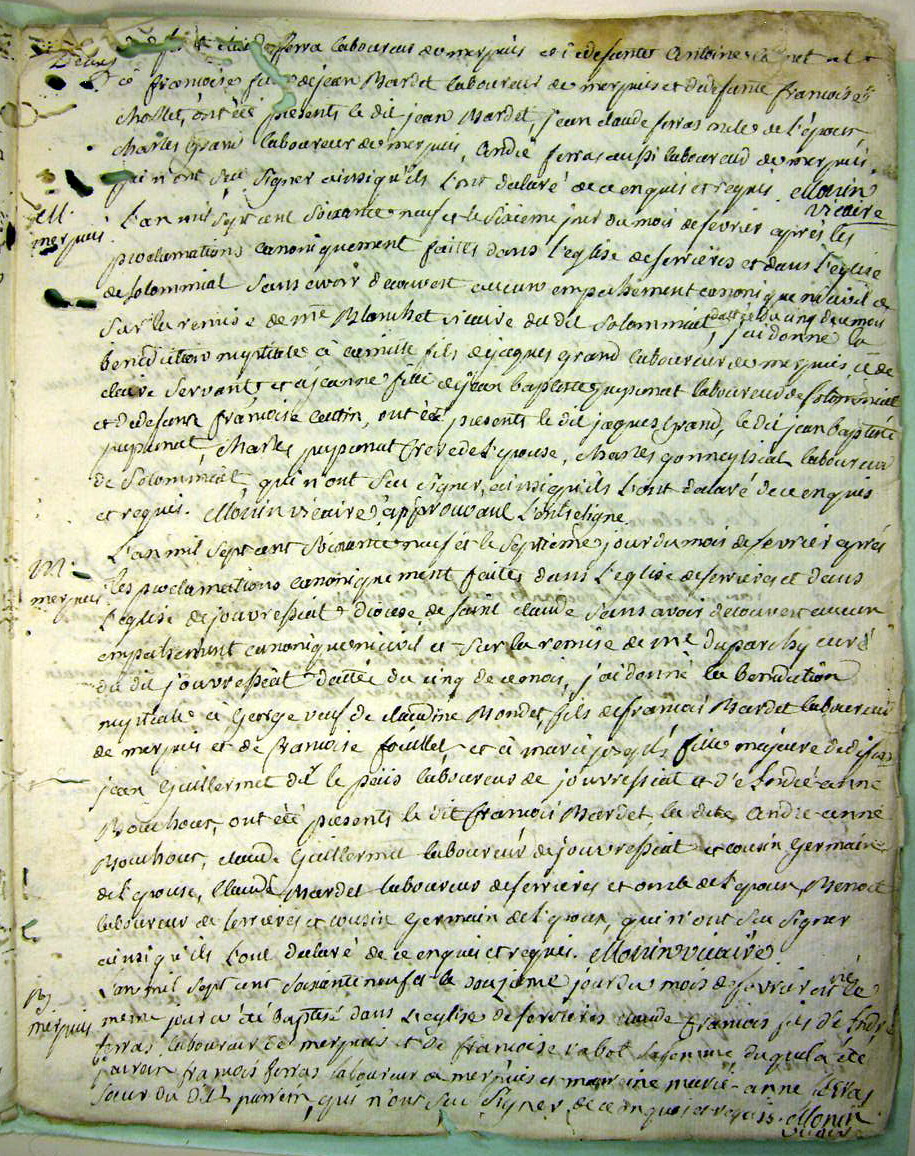 ferra laboureur de merpuis et de defunte Antoine
et a francoise fille de jean Mardet laboureur de merpuis et de defunte francoise
chollet, ont été presents le dit jean Mardet, jean claude ferras de l'epoux,
charles Grand laboureur de merpuis, André ferras aussi laboureur de merpuis
qui n'ont seu signer ainsi qu'ils l'ont declaré de ce enquis et requis. Monin
vicaire
M.
merpuis
L'an mil sept cent soixante neuf et le sixieme jour du mois de fevrier après les
proclamations canoniquement faites dans l'eglise de serrieres et dans l'eglise
de solommiat sans avoir decouvert aucun empechement canonique ni civil et
sur la remise de mre Blanchet vicaire du dit solommiat dattée du cinq du mois
j'ai donné la
benediction nuptiale à camille fils de jaques grand laboureur de merpuis, et de
claire servant et a jeanne fille de jean baptiste pupunat laboureur de solommiat
et de defunte francoise cattin, ont été presents le dit jaques Grand, le dit jean baptiste
pupunat, charles pupunat frere de l'epouse, charles laboureur
de solommiat qui n'ont seu signer, ainsi qu'ils l'ont declaré de ce enquis
et requis. Monin vicaire approuvant
M.
merpuis
L'an mil sept cent soixante neuf et le septieme jour du mois de fevrier après
les proclamations canoniquement faites dans l'eglise de serrieres et dans
l'eglise de jouvressiat diocese de saint claude sans avoir decouvert aucun
empechement canonique ni civil et sur la remise de mre duparchy curé
du dit jouvressiat dattée du cinq de ce mois, j'ai donné la benediction
nuptiale à George veuf de claudine Mondet, fils de francois Mardet laboureur
de merpuis et de francoise fouillet et à marie fille majeure de defunt
jean Guillermet dit le laboureur de jouvressiat et d'Andrée anne
Bouchour, ont été presents le dit francois Mardet, la dite Andrée anne
Bouchour, claude Guillermet laboureur de jouvressiat et cousin germain
de l'epouse, Claude Mardet laboureur de serrieres et oncle de l'epoux, Benoit
laboureur de serrieres et cousin germain de l'epoux, qui n'ont seu signer
ainsi qu'ils l'ont declaré de ce enquis et requis. Monin vicaire
B
merpuis
L'an mil sept cent soixante neuf et le douzieme jour du mois de fevrier est né et le
meme jour a été baptisé dans l'eglise de serrieres claude francois fils d'André
ferras laboureur de merpuis et de francoise rabot sa femme duquel a été
parrain francois ferras laboureur de merpuis et marreine marie-anne ferras
soeur du dit parrein, qui n'ont seu signer de ce enquis et requis. Monin
vicaire